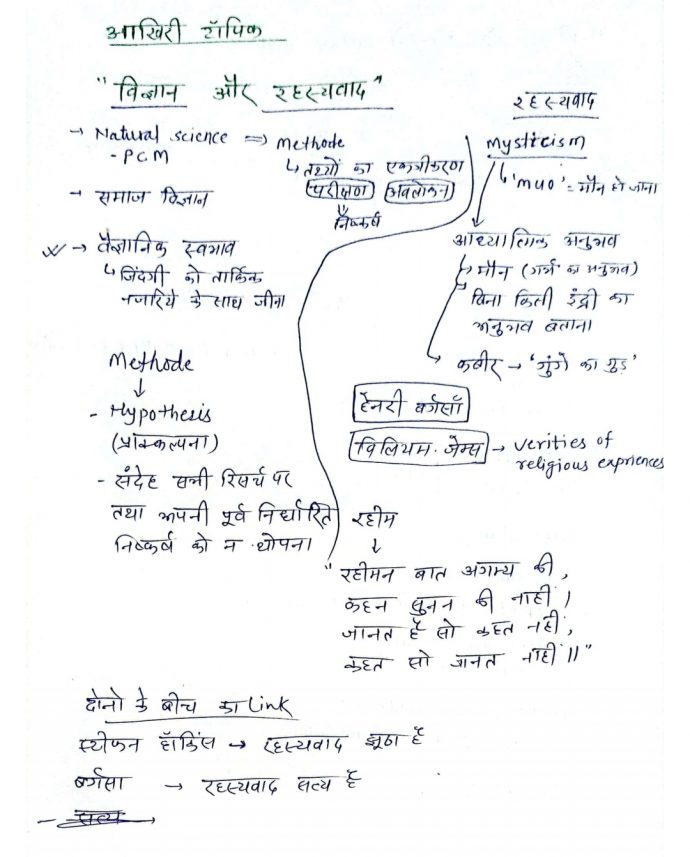 आखिरी टॉपिक
"विज्ञान और रहस्यवाद"
→ Natural science ⇒ Methode
- PCM
↳ तथ्यों का एकत्रीकरण
परीक्षण अवलोकन
⇓
निष्कर्ष
→ समाज विज्ञान
→ वैज्ञानिक स्वभाव
↳ जिंदगी को तार्किक
नजरिये के साथ जीना
Methode
↓
- Hypothesis
(प्राक्कल्पना)
- संदेह सभी रिसर्च पर
तथा अपनी पूर्व निर्धारित
निष्कर्ष को न थोपना
रहस्यवाद
Mysticism
↳ 'muo' = मौन हो जाना
आध्यात्मिक अनुभव
↳ मौन (गर्भ का अनुभव)
बिना किसी इंद्री का
अनुभव बताना
कबीर → 'गुंगे का गुड़'
हेनरी बर्गसाँ
विलियम जेम्स → verities of
religious expriences
रहीम
↓
"रहीमन बात अगम्य की,
कहन सुनन की नाही।
जानत है सो कहत नही,
कहत सो जानत नाही॥"
दोनो के बीच का Link
स्टीफन हॉकिंस → रहस्यवाद झूठा है
बर्गसा → रहस्यवाद सत्य है